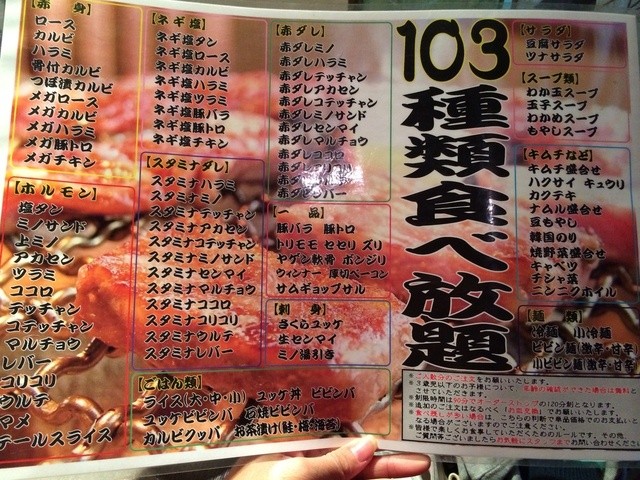 【赤 身】
ロース
カルビ
ハラミ
骨付カルビ
つぼ漬カルビ
メガロース
メガカルビ
メガハラミ
メガ豚トロ
メガチキン
【ホルモン】
塩タン
ミノサンド
上ミノ
アカセン
ツラミ
ココロ
テッチャン
コテッチャン
マルチョウ
レバー
コリコリ
ウルテ
マメ
テールスライス
【ネギ塩】
ネギ塩タン
ネギ塩ロース
ネギ塩カルビ
ネギ塩ハラミ
ネギ塩ツラミ
ネギ塩豚バラ
ネギ塩豚トロ
ネギ塩チキン
【スタミナダレ】
スタミナハラミ
スタミナミノ
スタミナテッチャン
スタミナアカセン
スタミナコテッチャン
スタミナミノサンド
スタミナセンマイ
スタミナマルチョウ
スタミナココロ
スタミナコリコリ
スタミナウルテ
スタミナレバー
【ごはん類】
ライス(大・中・小) ユッケ丼 ビビンバ
ユッケビビンバ 石焼ビビンバ
カルビクッパ お茶漬け(鮭・梅・海苔)
【赤ダレ】
赤ダレミノ
赤ダレハラミ
赤ダレテッチャン
赤ダレアカセン
赤ダレコテッチャン
赤ダレミノサンド
赤ダレセンマイ
赤ダレマルチョウ
赤ダレココロ
【一 品】
豚バラ 豚トロ
トリモモ セセリ ズリ
ヤゲン軟骨 ボンジリ
ウィンナー 厚切ベーコン
サムギョプサル
【刺 身】
さくらユッケ
生センマイ
ミノ湯引き
103
種類食べ放題
【サラダ】
豆腐サラダ
ツナサラダ
【スープ類】
わか玉スープ
玉子スープ
わかめスープ
もやしスープ
【キムチなど】
キムチ盛合せ
ハクサイ キュウリ
カクテキ
ナムル盛合せ
豆もやし
韓国のり
焼野菜盛合せ
キャベツ
チシャ菜
ニンニクホイル
【麺 類】
冷麺 小冷麺
ビビン麺(激辛・甘辛)
小ビビン麺(激辛・甘辛)
※ご人数分のご注文をお願いいたします。
※3歳児以下のお子様について
させていただきます。
※追加のご注文はなるべく「お皿完食」でお願いします。